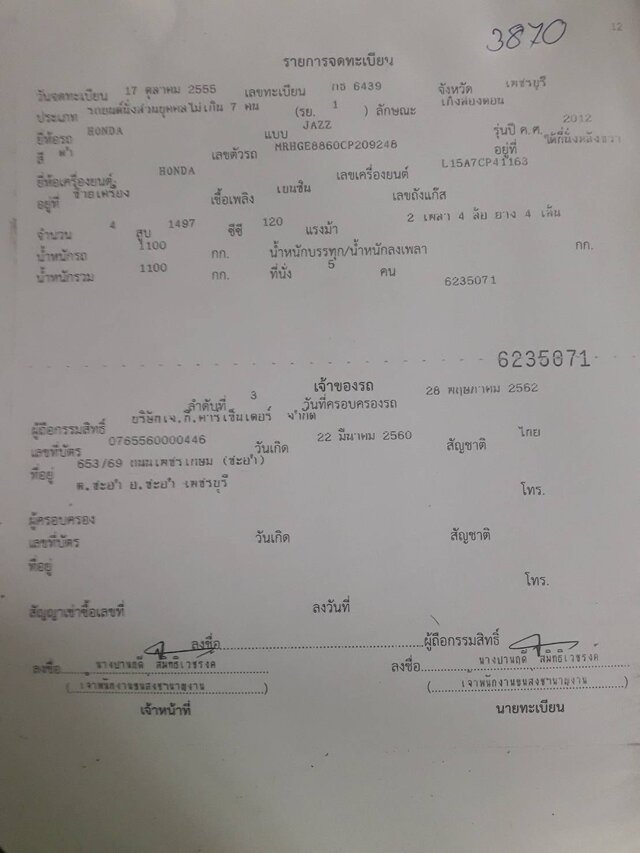 3870
12
รายการจดทะเบียน
วันจดทะเบียน 17 ตุลาคม 2555 เลขทะเบียน กธ 6439 จังหวัด เพชรบุรี
ประเภท รถยนต์นั่งส่วนบุคคลไม่เกิน 7 คน (รย. 1 ) ลักษณะ เก๋งสองตอน
ยี่ห้อรถ HONDA แบบ JAZZ รุ่นปี ค.ศ. 2012
สี เลขตัวรถ MRHGE8860CP209248 อยู่ที่ ใต้ที่นั่งหลังขวา
ยี่ห้อเครื่องยนต์ HONDA เลขเครื่องยนต์ L15A7CP41163
อยู่ที่ ซ้ายเครื่อง เชื้อเพลิง เบนซิน เลขถังแก๊ส
จำนวน 4 สูบ 1497 ซีซี 120 แรงม้า 2 เพลา 4 ล้อ ยาง 4 เส้น
น้ำหนักรถ 1100 กก. น้ำหนักบรรทุก/น้ำหนักลงเพลา กก.
น้ำหนักรวม 1100 กก. ที่นั่ง 5 คน
6235071
6235071
เจ้าของรถ
ลำดับที่ 3 วันที่ครอบครองรถ 28 พฤษภาคม 2562
ผู้ถือกรรมสิทธิ์ บริษัทเจ.ที.คาร์เซ็นเตอร์ จำกัด
เลขที่บัตร 0765560000446 วันเกิด 22 มีนาคม 2560 สัญชาติ ไทย
ที่อยู่ 653/69 ถนนเพชรเกษม (ชะอำ)
ต.ชะอำ อ.ชะอำ เพชรบุรี โทร.
ผู้ครอบครอง
เลขที่บัตร วันเกิด สัญชาติ
ที่อยู่
โทร.
สัญญาเช่าซื้อเลขที่ ลงวันที่
ลงชื่อ ผู้ถือกรรมสิทธิ์
ลงชื่อ นางปานฤดี ลงชื่อ นางปานฤดี
(เจ้าพนักงานขนส่งชำนาญงาน) (เจ้าพนักงานขนส่งชำนาญงาน)
เจ้าหน้าที่ นายทะเบียน